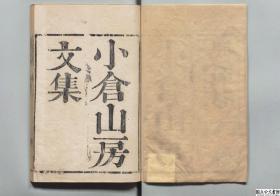 小倉山房
文集